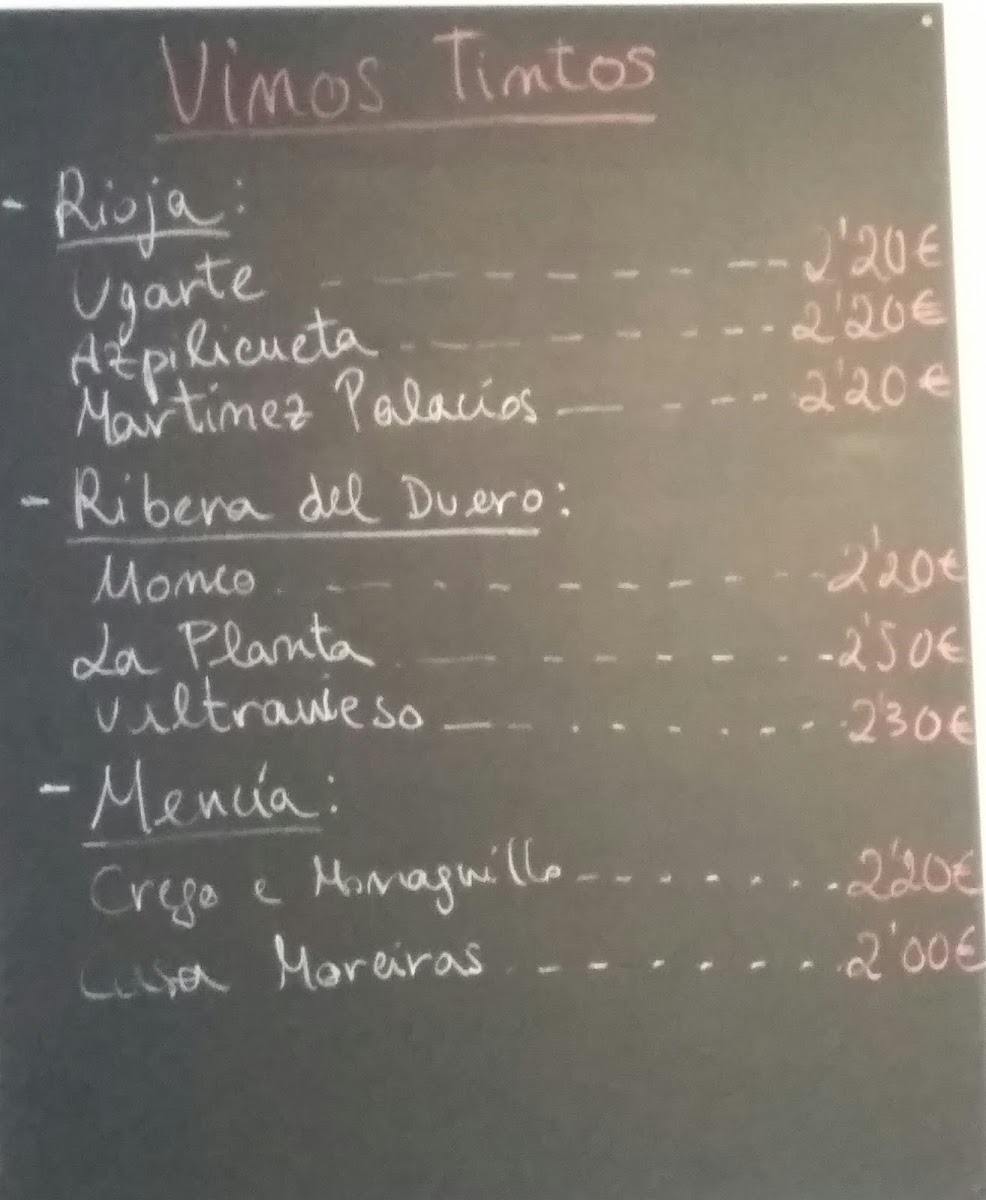 Vinos Tintos
- Rioja:
Ugarte - - - - - - - - - 2'20€
Azpilicueta - - - - - - - - 2'20€
Martinez Palacios - - - - - 2'20€
- Ribera del Duero:
Monco - - - - - - - - - - 2'20€
La Planta - - - - - - - - 2'50€
Viltravieso - - - - - - - - 2'30€
- Mencía:
Crego e Monaguillo - - - - - - - 2'20€
Casa Moreiras - - - - - - - 2'00€